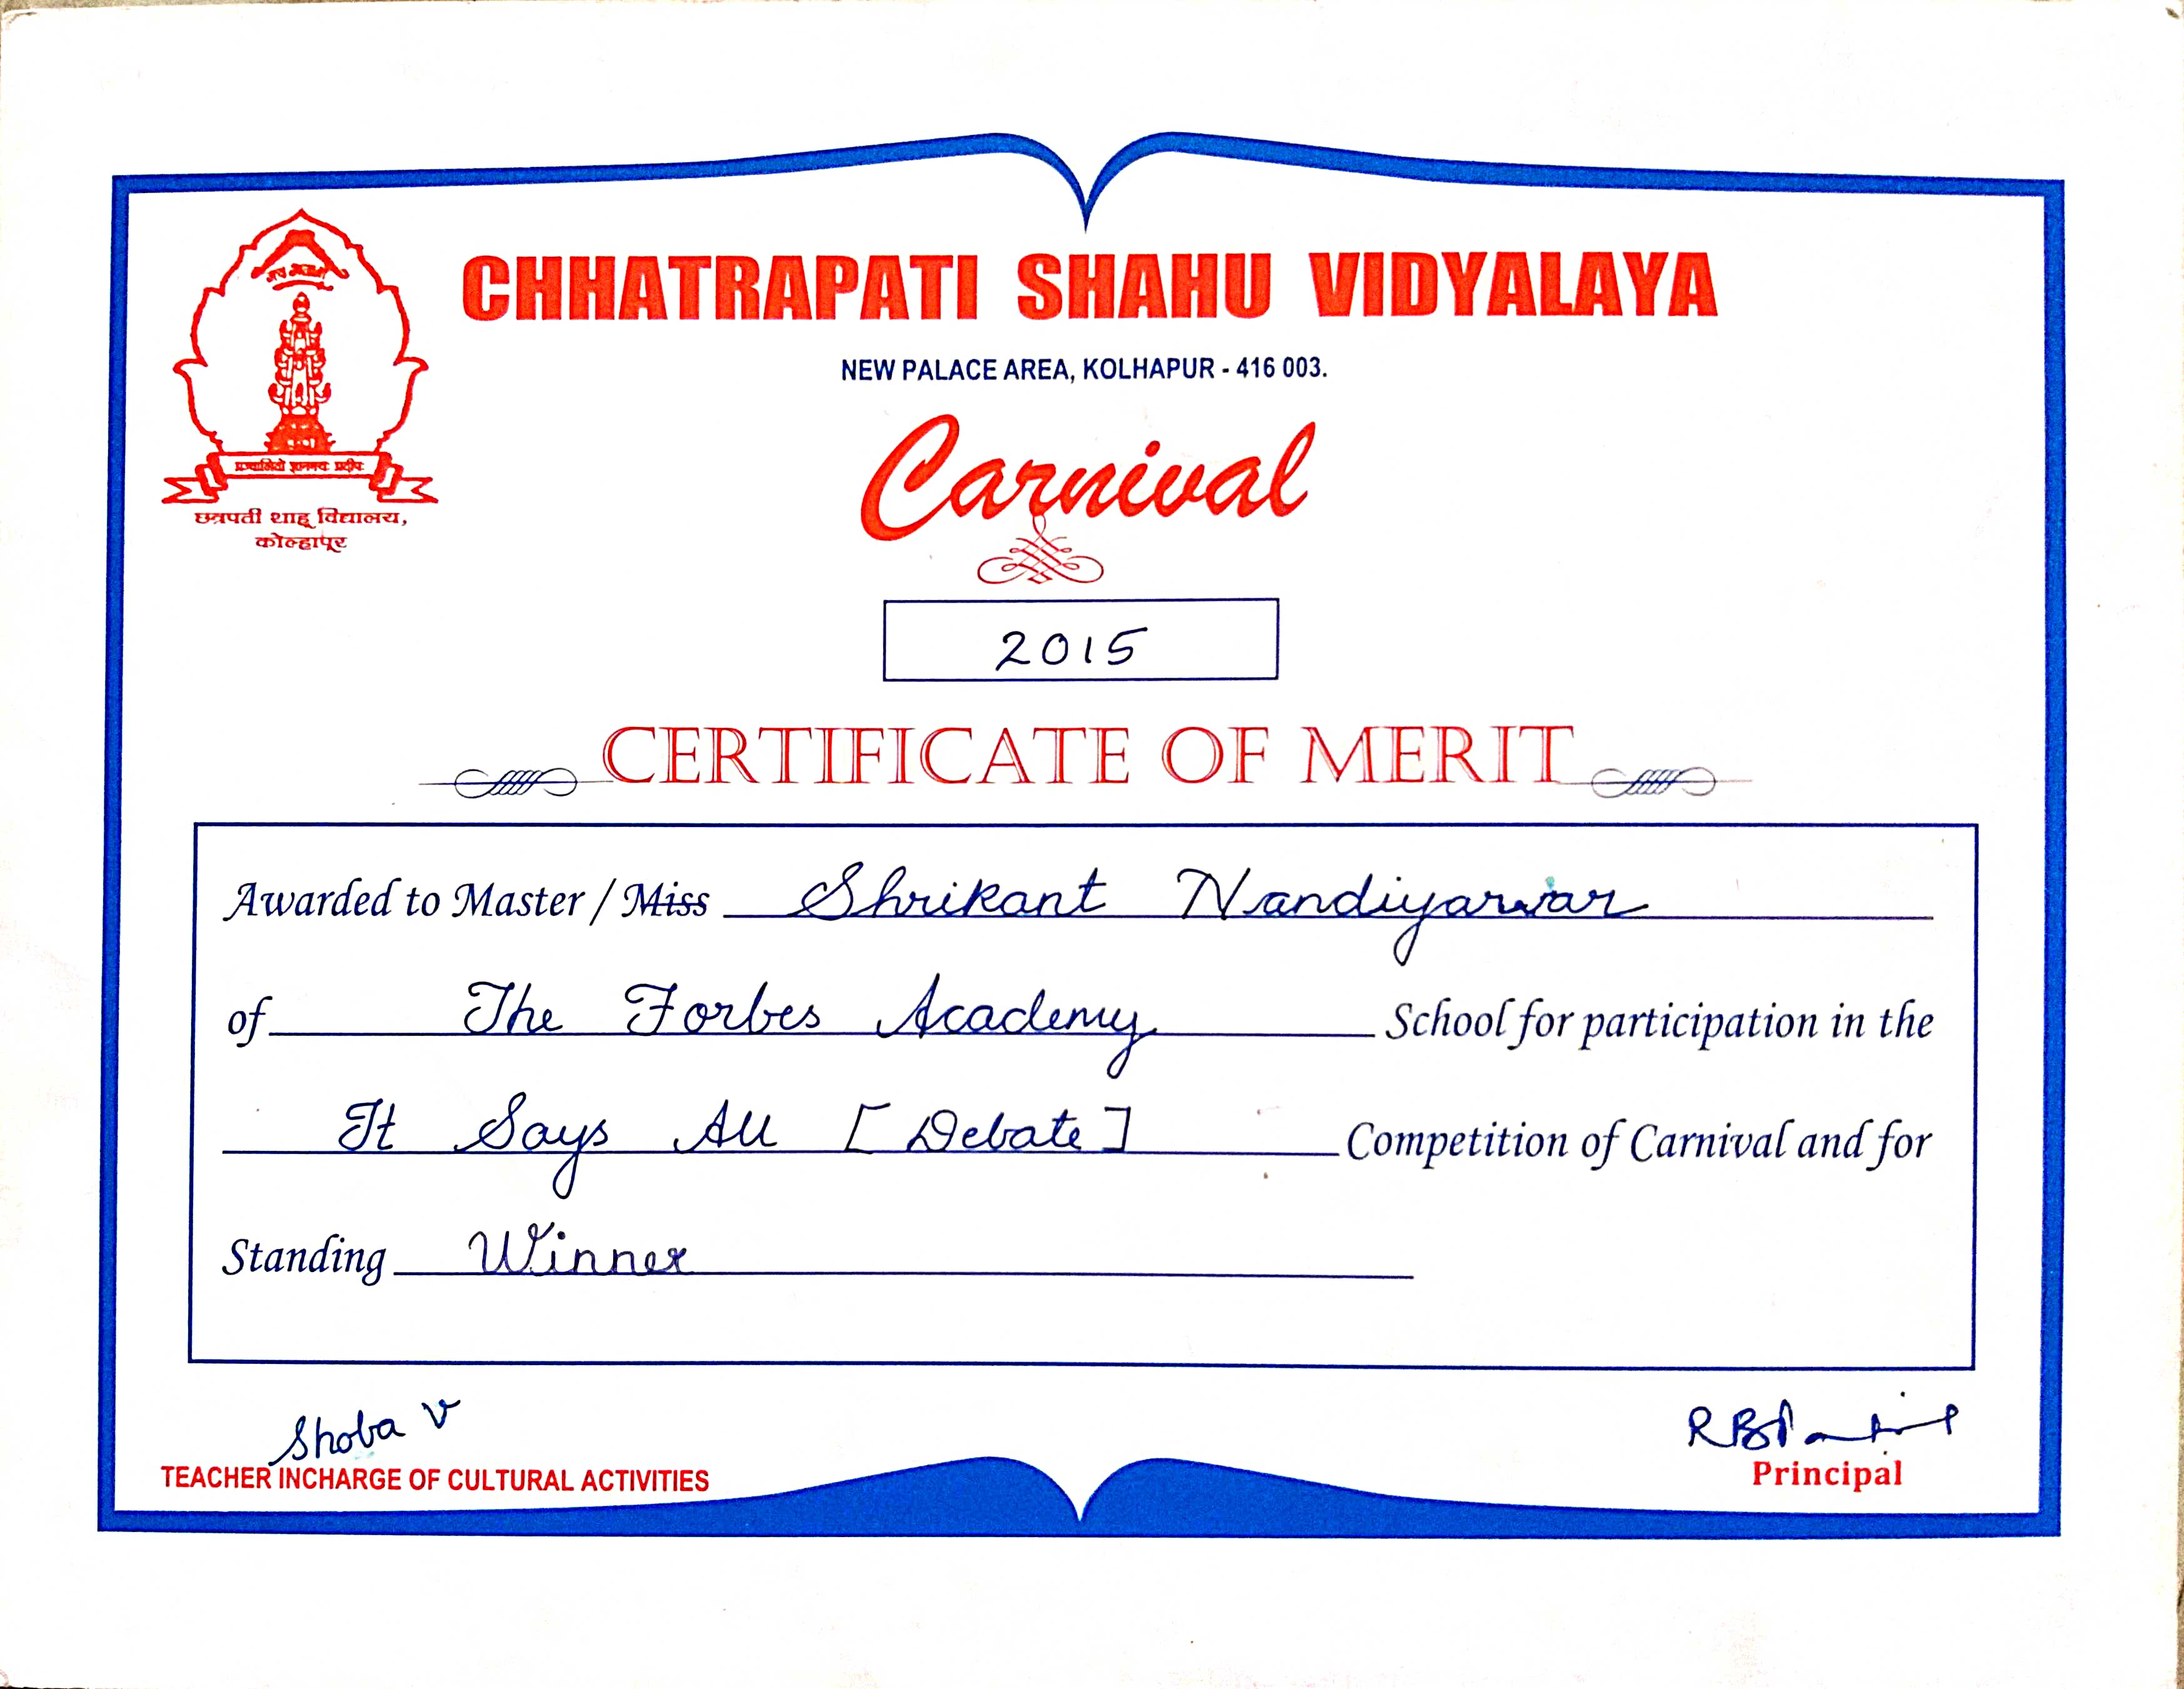 CHHATRAPATI SHAHU VIDYALAYA
NEW PALACE AREA, KOLHAPUR - 416 003.
छत्रपती शाहू विद्यालय,
कोल्हापूर
Carnival
2015
CERTIFICATE OF MERIT
Awarded to Master / Miss Shrikant Nandiyarwar
of The Forbes Academy School for participation in the
It Says All [Debate] Competition of Carnival and for
Standing Winner
Shoba V
TEACHER INCHARGE OF CULTURAL ACTIVITIES
Principal